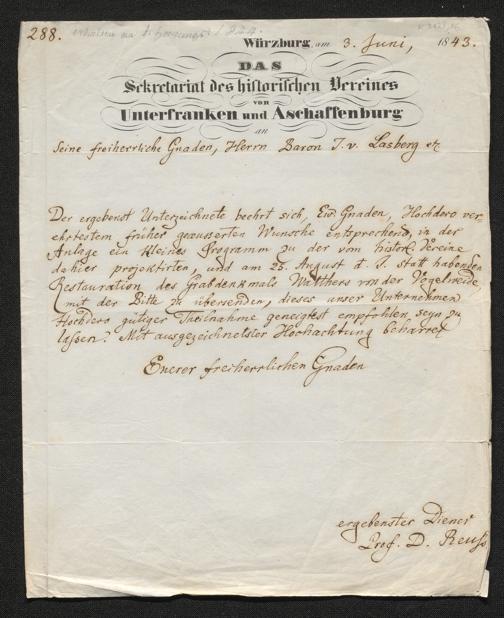 288.
Würzburg, am 3. Juni, 1843.
DAS
Sekretariat des historischen Vereines
von
Unterfranken und Aschaffenburg
an
Seine freiherrliche Gnaden, Herrn Baron J. v. Lasberg etc
Der ergebenst Unterzeichnete beehrt sich, Ew. Gnaden, Hochdero ver-
ehrtestem früher geäusserten Wunsche entsprechend, in der
Anlage ein kleines Programm zu der vom histor. Vereine
dahier projektirten, und am 25. August d. J. statt habenden
Restauration des Grabdenkmals Walthers von der Vogelweide,
mit der Bitte zu übersenden, dieses unser Unternehmen
Hochdero gütiger Theilnahme geneigtest empfohlen seyn zu
laßen? Mit ausgezeichnetster Hochachtung beharret
Euerer freiherrlichen Gnaden
ergebenster Diener
Prof. D. Reuß